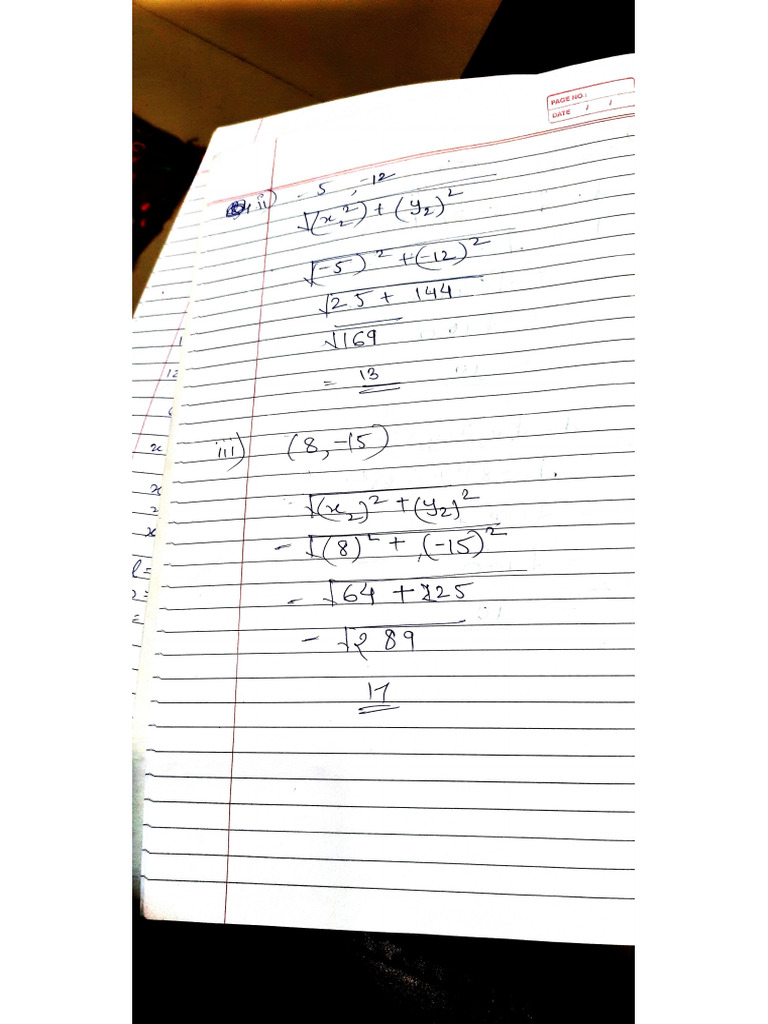 PAGE NO:
DATE / /
ii) -5, -12
√(x₂²) + (y₂)²
√(-5)² + (-12)²
√25 + 144
√169
= 13
iii) (8, -15)
√(x₂)² + (y₂)²
- √(8)² + (-15)²
- √64 + 225
- √289
17
1
12
x
x
2
x
l=
2=
=